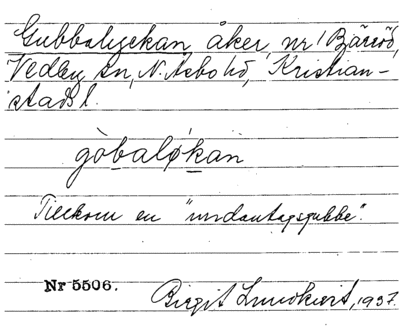 Gubbalyckan, åker, nr 1 Bäreröd,
Vedby sn, N. Åsbo hd, Kristian-
stads l.
gòbalø̀kan
Tillkom en "undantagsgubbe".
Nr 5506.
Birgit Lundkvist, 1937.